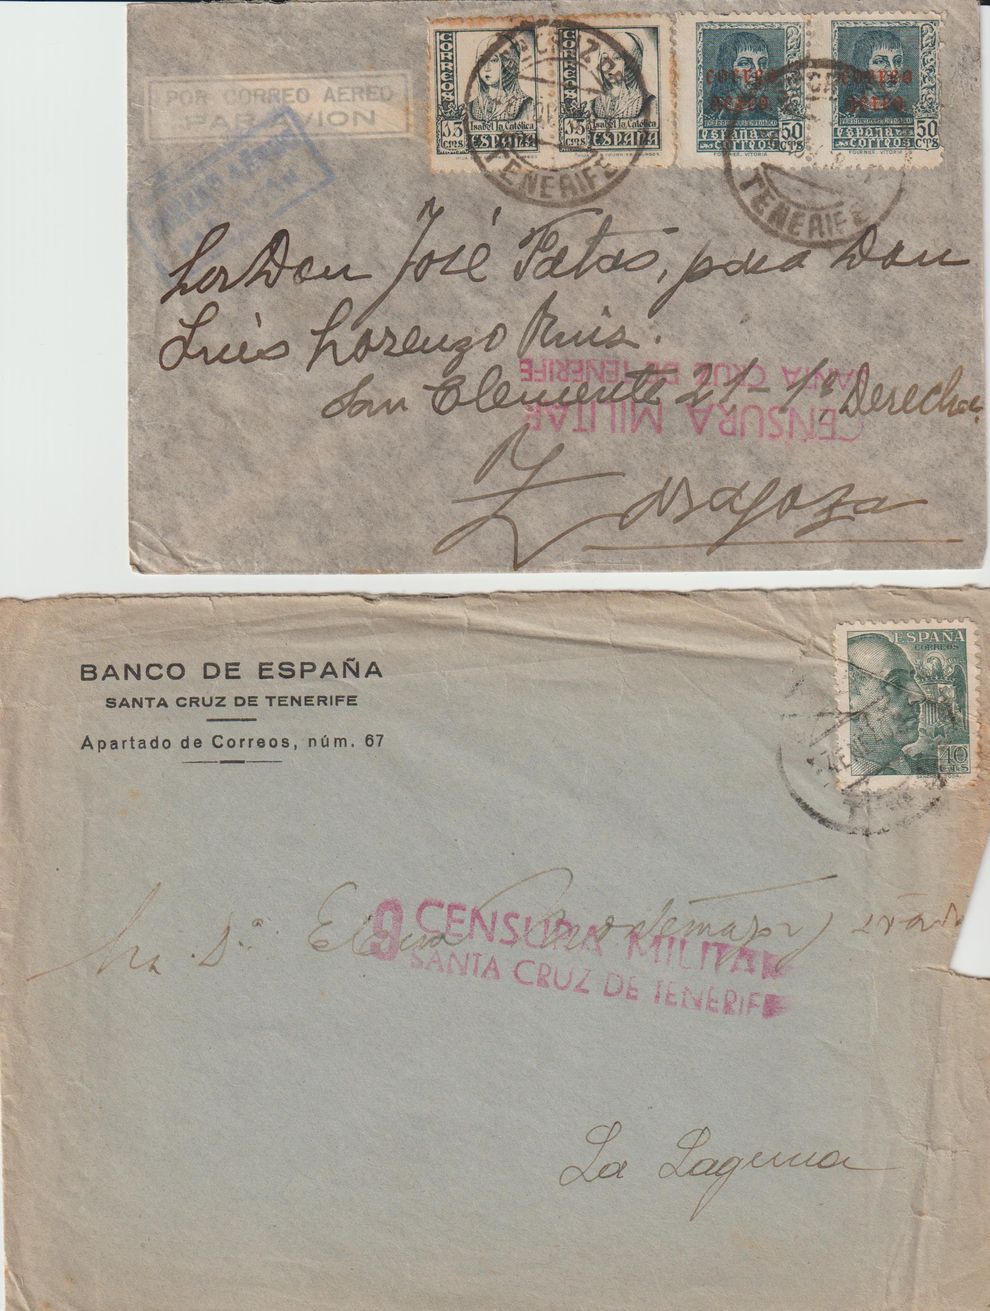 POR CORREO AEREO
PAR AVION
CORREOS
35 cts
Isabel la Católica
ESPAÑA
CORREOS
35 cts
Isabel la Católica
ESPAÑA
CORREO
AEREO
españa
correos
50
CTS
FOURNIER. VITORIA
CORREO
AEREO
españa
correos
50
CTS
FOURNIER. VITORIA
TENERIFE
TENERIFE
Sor Don José Fatás, para Don
Luis Lorenzo Ruiz.
San Clemente 21-1º Derecha
Zaragoza
CENSURA MILITAR
SANTA CRUZ DE TENERIFE
BANCO DE ESPAÑA
SANTA CRUZ DE TENERIFE
Apartado de Correos, núm. 67
ESPAÑA
CORREOS
40
CTS
9 CENSURA MILITAR
SANTA CRUZ DE TENERIFE
Sra. Dª Elena
La Laguna